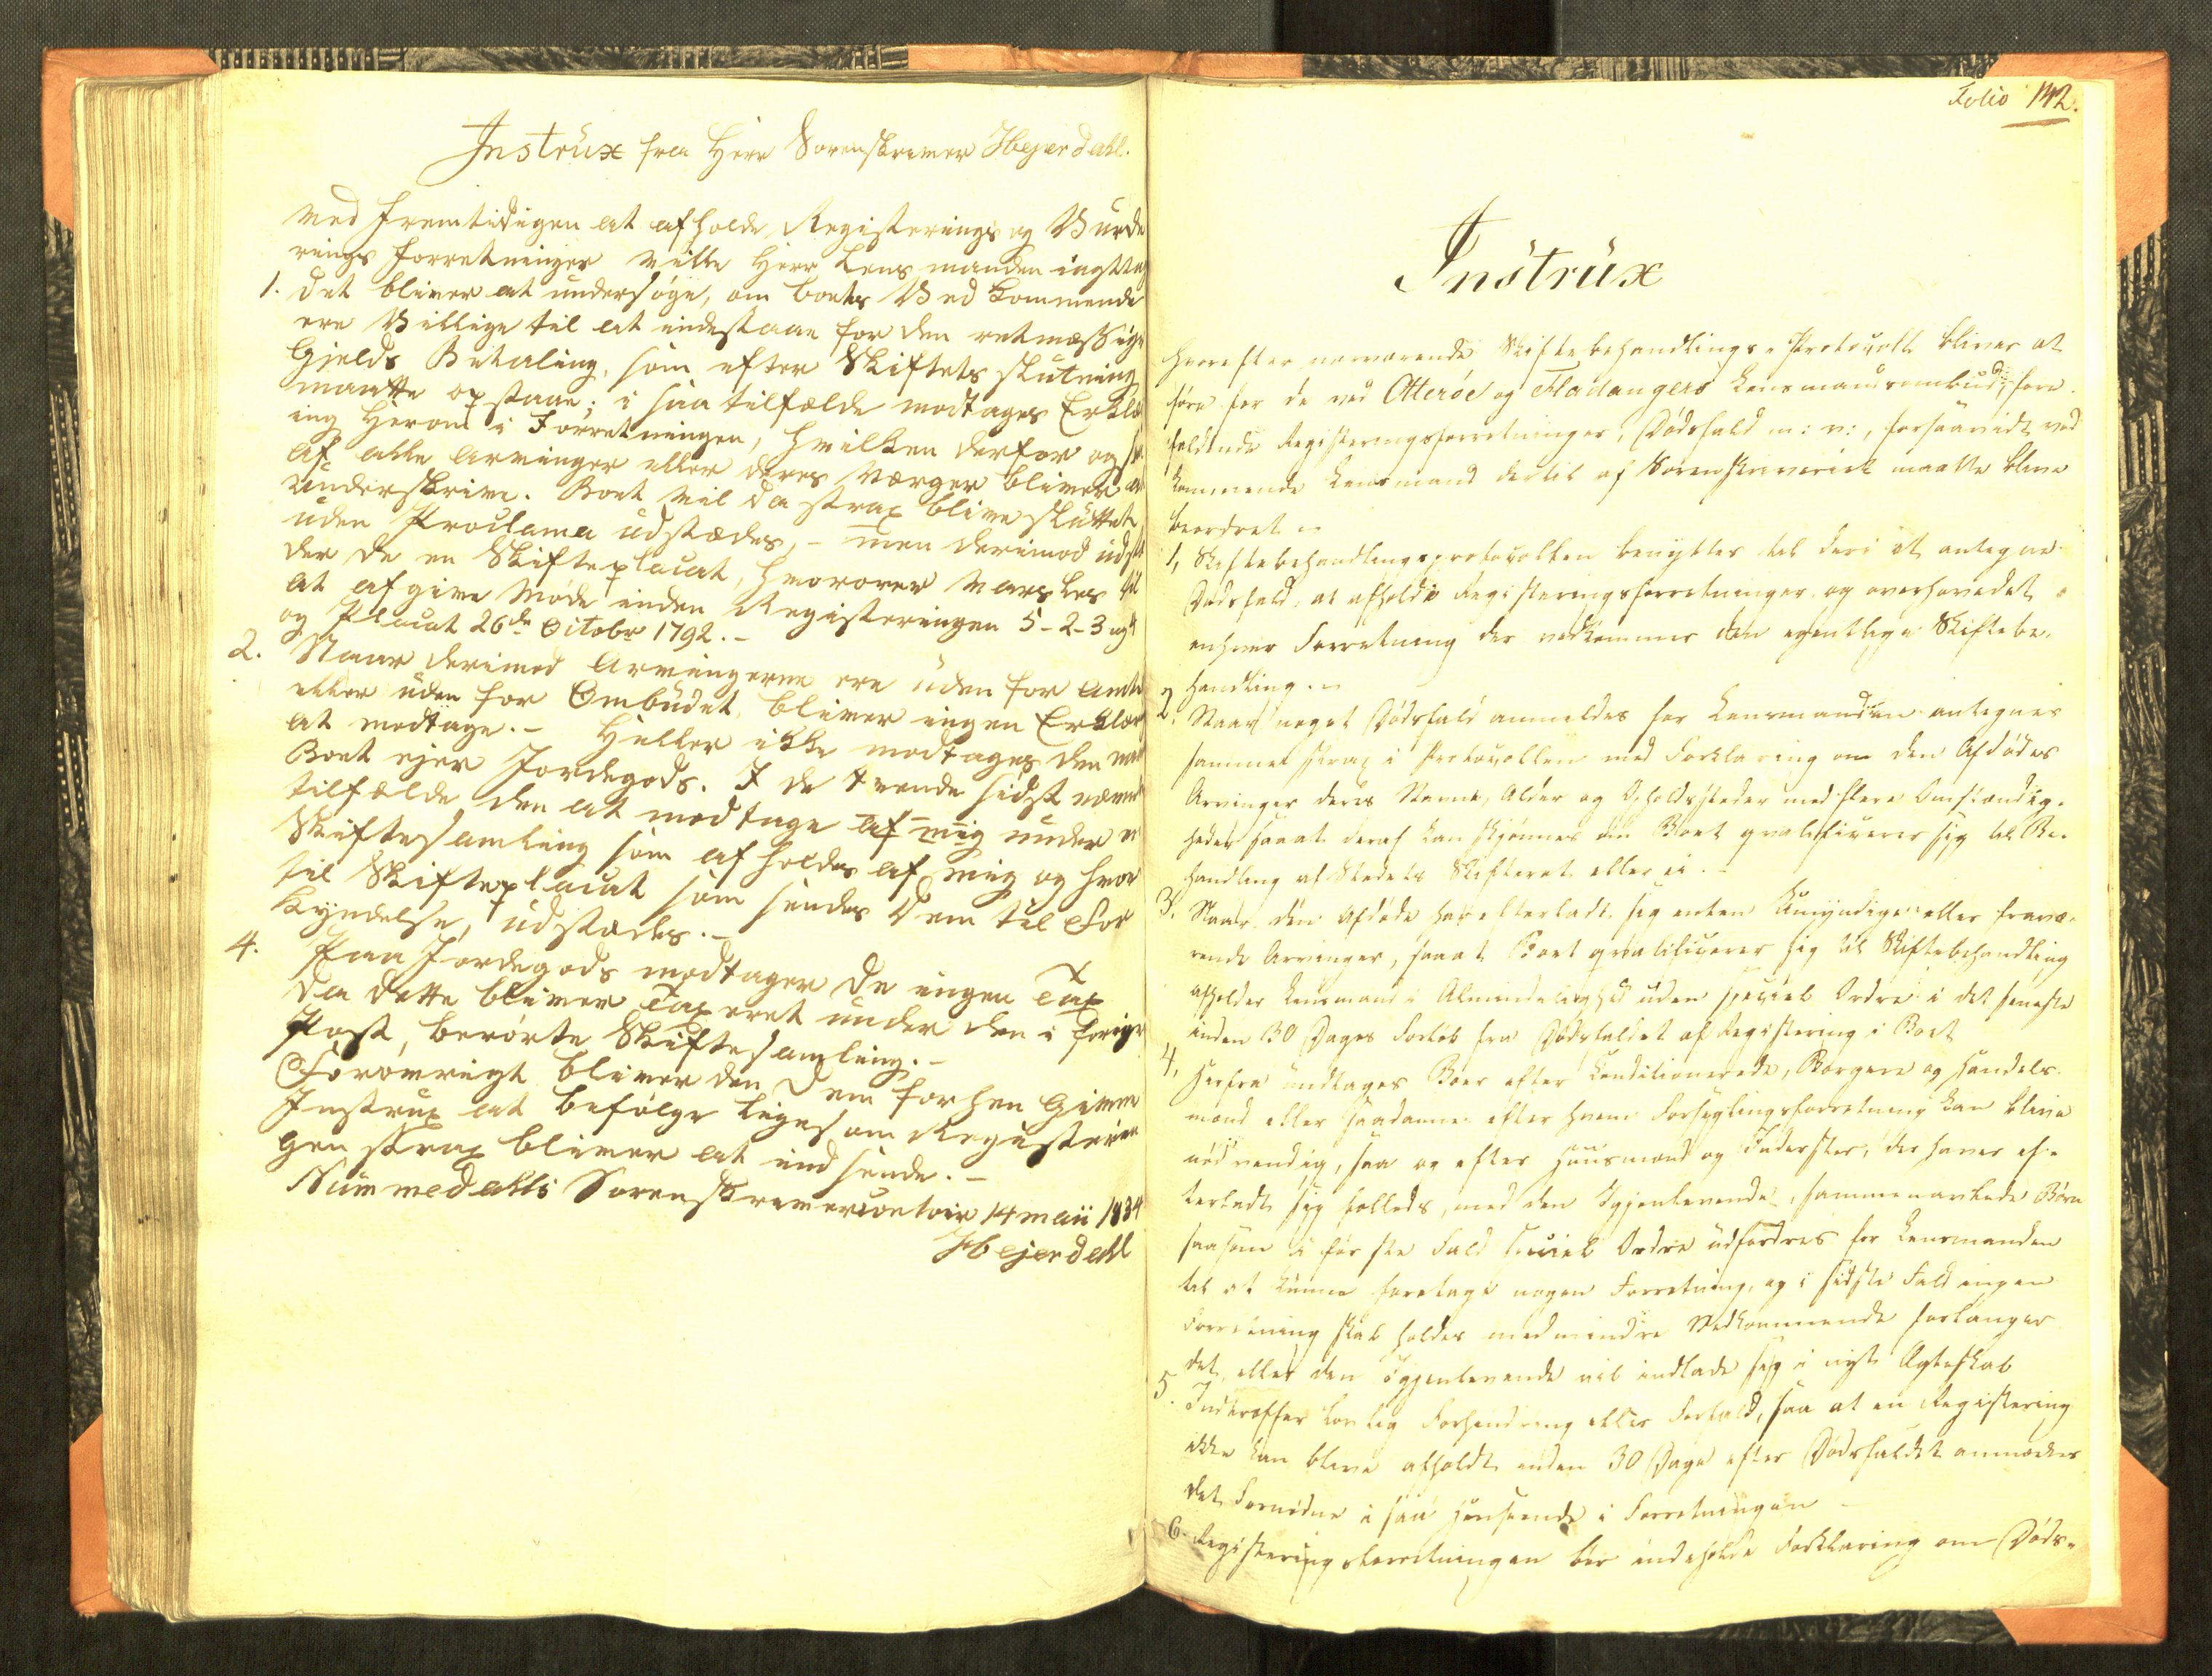 Instrüx fra Herr Sorenskriver Hejerdahl.
Ved fremtidigen at afholde Registerings og Vurde
rings forretninger ville Herr Lensmanden iagttag
1. det bliver at undersøge, om boets Vedkommende
ere Villige til at indestaae for den retmæssige
Gjelds Betaling, som efter Skiftets slutning
maatte opstaae; i saa tilfælde modtages Erklæ
ing herom i Forretningen, hvilken derfor og
af alle Arvinger eller deres Værger bliver a
underskrive. Boet vil da strax blive sluttet
uden Proclama udstædes, - men derimod udst
der de en Skifteplacat, hvorover Varsles til
at afgive Møde inden Registeringen 5-2-3 og
og Placat 26de Octobr 1792.-
2. Naar derimod Arvingerne ere uden for Amte
eller uden for Ombudet, bliver ingen Erklær
at modtage.- Heller ikke modtages den naar
Boet ejer Jordegods. I de tvende sidst nævnt
tilfælde den at modtage af mig under
Skiftesamling som afholdes af mig og hvor
til Skifteplacat som sendes Dem til For
kyndelse, udstædes.-
4. Paa Jordegods modtager De ingen Tax
da dette bliver Taxeret under den i forige
Post, berørte Skiftesamling.-
Forøvrigt bliver den Dem forhen Given
Instrux at befølge ligesom Registerin
gen strax bliver at indsende.-
Nummedahls Sorenskrivercontoir 14 maii 1834
Hejerdahl
Folio 142.
Instrüx
hvorefter nærværende Skiftebehandlings-Protocoll bliver at
føre for de ved Otterøe og Fladangers Lensmandsombud, fore
faldende Registeringsforretninger, Dødsfald m: v:, forsaavidt ved
kommende Lensmand dertil af Sorenskriveriet maatte blive
beordret.-
1, Skiftebehandlingsprotocollen benyttes til deri at antegne
Dødsfald, at afholde Registeringsforretninger og overhovedet
enhver Forretning der vedkommer den egentlige Skiftebe-
handling.-
2, Naar noget Dødsfald anmeldes for Lensmanden antegnes
samme strax i Protocollen med Forklaring om den Afdødes
Arvinger deres Navne, Alder og Opholdssteder med flere Omstændig-
heder saaat deraf kan skjønnes om Boet qvalificerer sig til Be-
handling af Stedets Skifteret eller ei.-
3, Naar den Afdøde har efterladt sig enten Umyndige eller fravæ-
rende Arvinger, saaat Boet qvalificerer sig til Skiftebehandling
afholder Lensmand i Almindelighed uden speciel Ordre i det seneste
inden 30 Dages Forløb fra Dødsfaldet af Registering i Boet
4, Herfra undtages Boer efter Conditionerede, Borgere og Handels-
mænd eller saadanne efter hvem Forseglingsforretning kan blive
nødvendig, saa og efter Huusmænd og Inderster, der haver ef-
terladt sig fælleds, med den Igjenlevende, sammenavlede Børn
saasom i første Fald speciel Ordre udfordres for Lensmanden
til at kunne foretage nogen Forretning, og i sidste Fald ingen
Forretning skal holdes med mindre Vedkommende forlanger
det, eller den Igjenlevende vil indlade sig i nyt Ægteskab
5. Indtræffer lovlig Forhindring eller Forfald, saa at en Registering
ikke kan blive afholdt inden 30 Dage efter Dødsfaldet anmærkes
det Fornødne i saa Henseende i Forretningen -
6. Registeringsforretningen bør indeholde Forklaring om Døds-